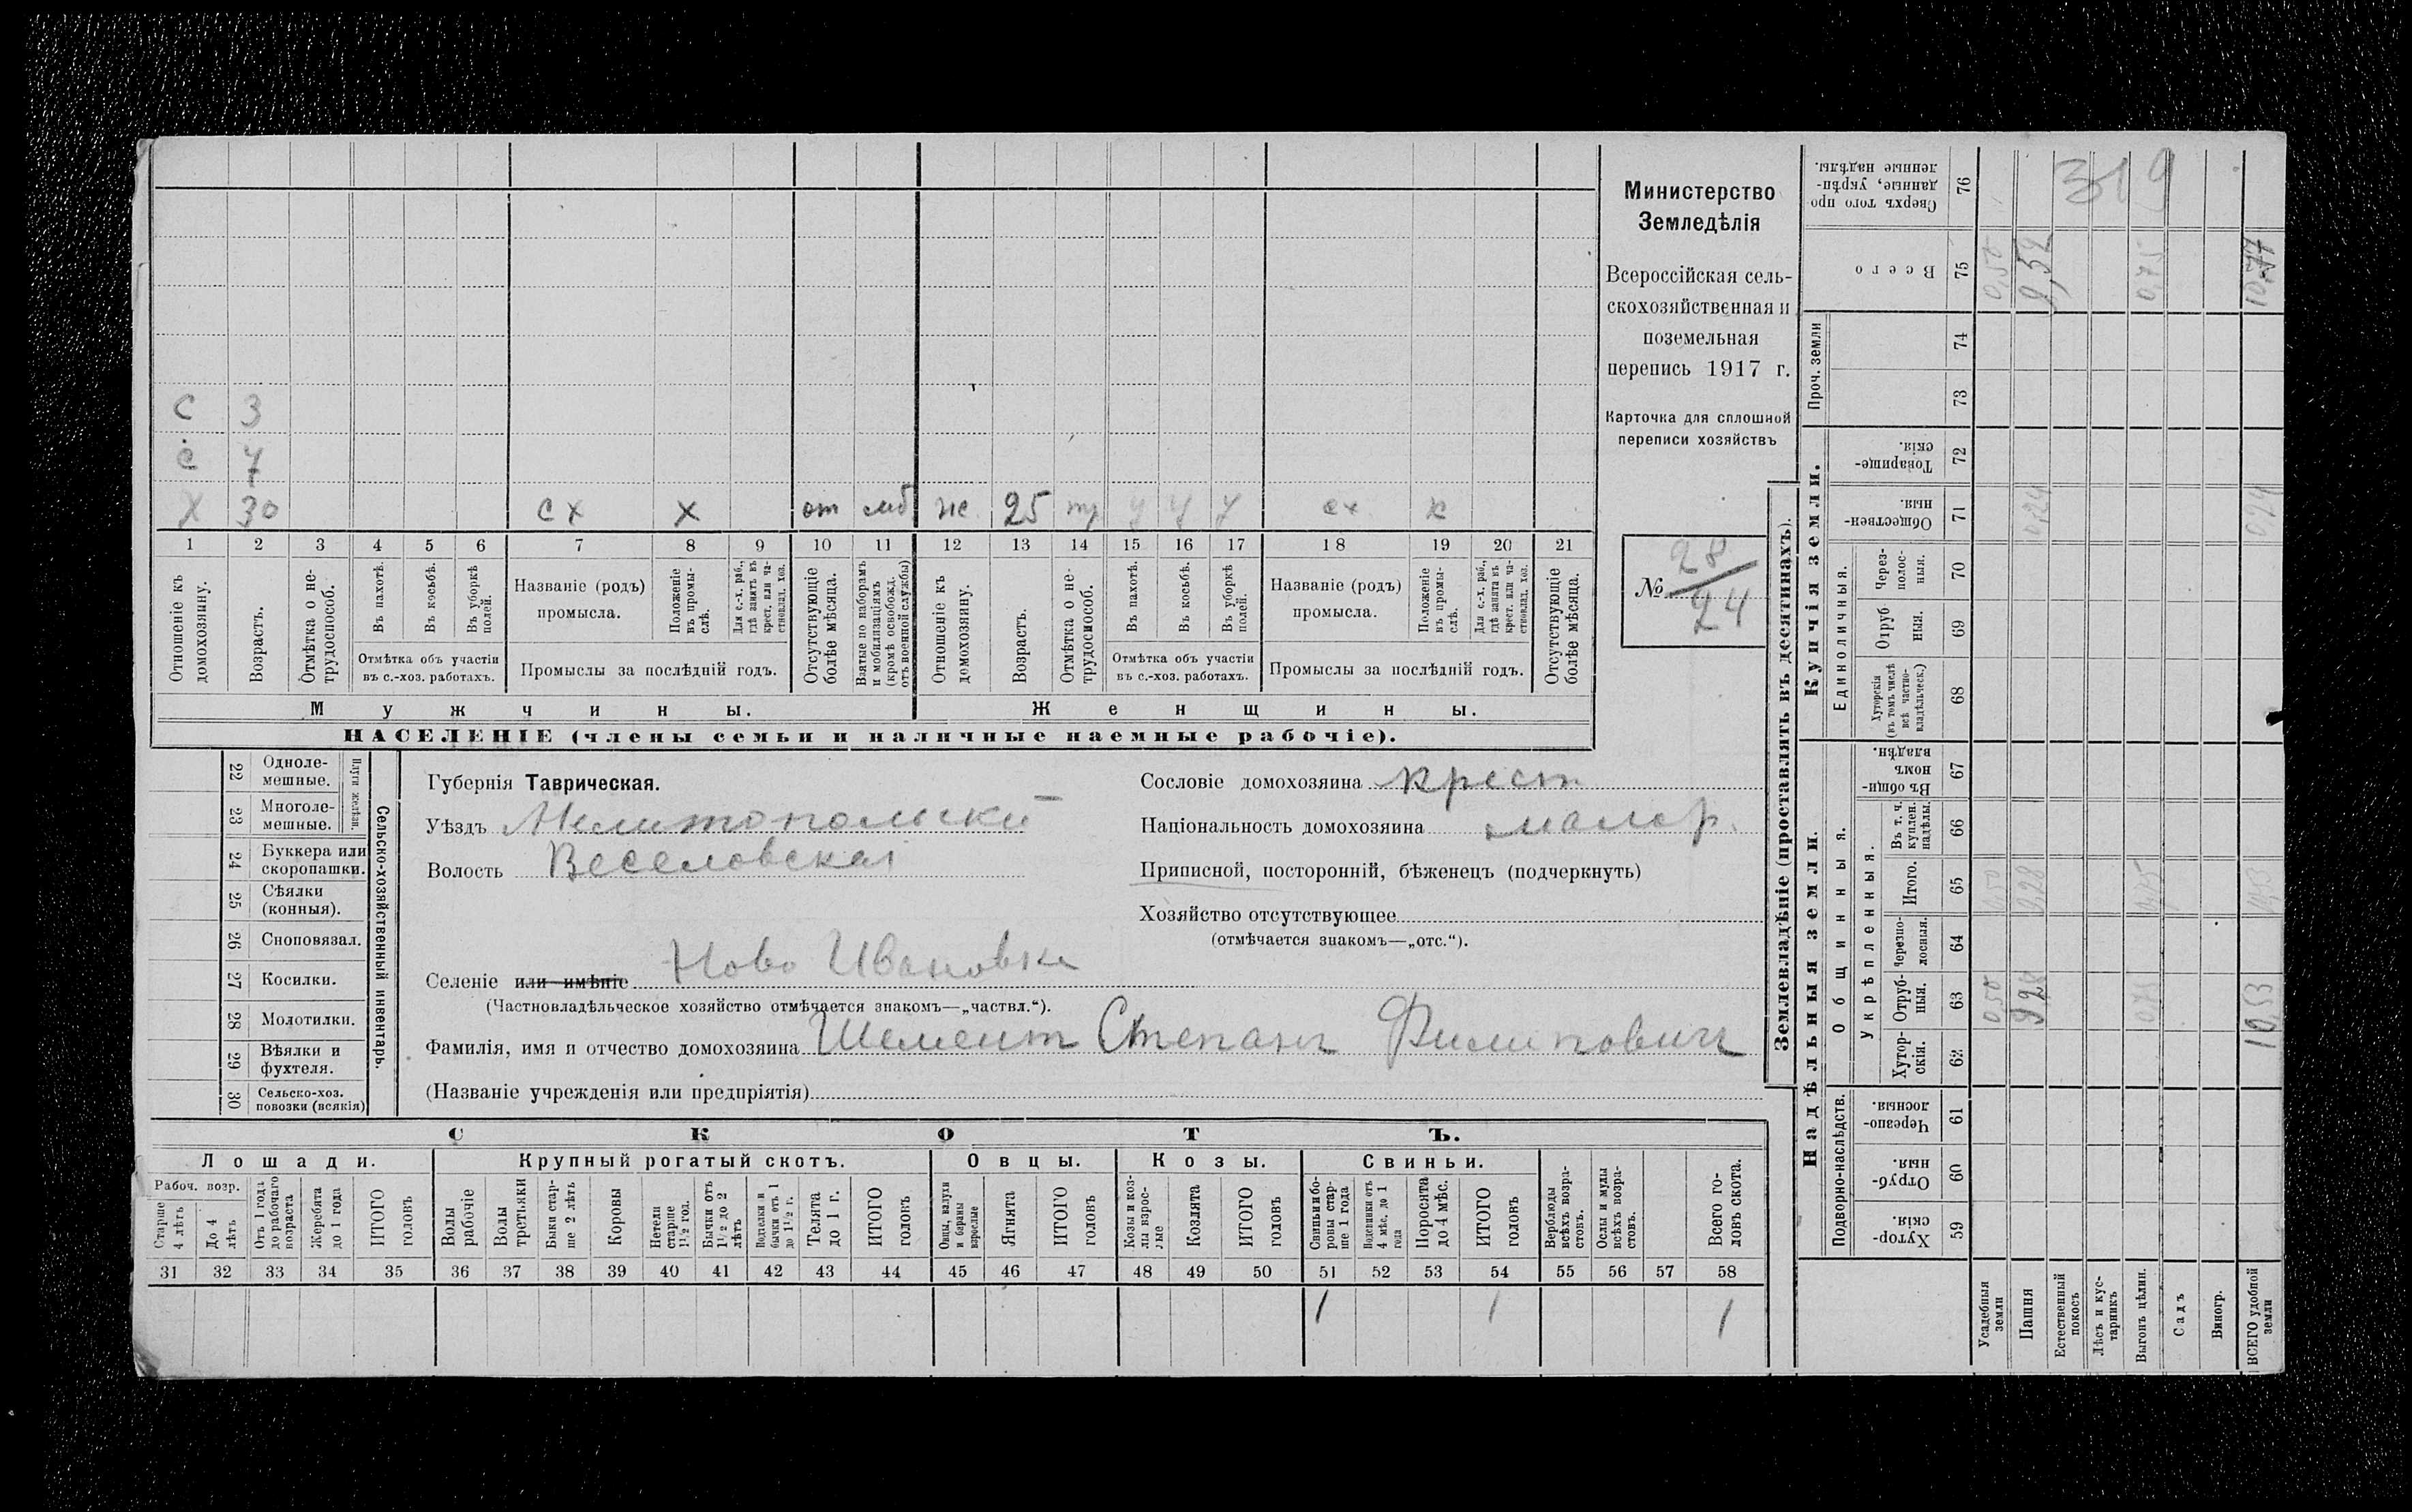 С 3
С 7
Х 30 сх х от мб же 25 тр у у у сх к
1 2 3 4 5 6 7 8 9 10 11 12 13 14 15 16 17 18 19 20 21
Отношеніе къ домохозяину.
Возрастъ.
Отмѣтка о не-
трудоспособ.
Въ пахотѣ.
Въ косьбѣ.
Въ уборкѣ полей.
Отмѣтка объ участіи
въ с.-хоз. работахъ.
Названіе (родъ)
промысла.
Положеніе
въ промы-
слѣ.
Для с.-х. раб.,
гдѣ занятъ въ
крест. или ча-
стновлад. хоз.
Промыслы за послѣдній годъ.
Отсутствующіе
болѣе мѣсяца.
Взятые по наборамъ
и мобилизаціямъ
(кромѣ освобожд.
отъ военной службы)
Отношеніе къ
домохозяину.
Возрастъ.
Отмѣтка о не-
трудоспособ.
Въ пахотѣ.
Въ косьбѣ.
Въ уборкѣ
полей.
Отмѣтка объ участіи
въ с.-хоз. работахъ.
Названіе (родъ)
промысла.
Положеніе
въ промы-
слѣ.
Для с.-х. раб.,
гдѣ занята въ
крест. или ча-
стновлад. хоз.
Промыслы за послѣдній годъ.
Отсутствующіе
болѣе мѣсяца.
Мужчины. Женщины.
НАСЕЛЕНІЕ (члены семьи и наличные наемные рабочіе).
Министерство
Земледѣлія
Всероссійская сель-
скохозяйственная и
поземельная
перепись 1917 г.
Карточка для сплошной
переписи хозяйствъ
№ 28
24
Сельско-хозяйственный инвентарь.
Плуги желѣзн.
22 Одноле-
мешные.
23 Многоле-
мешные.
24 Буккера или
скоропашки.
25 Сѣялки
(конныя).
26 Сноповязал.
27 Косилки.
28 Молотилки.
29 Вѣялки и
фухтеля.
30 Сельско-хоз.
повозки (всякія)
Губернія Таврическая.
Уѣздъ Мелитопольскій
Волость Веселовская
Сословіе домохозяина крест
Національность домохозяина малор.
Приписной, посторонній, бѣженецъ (подчеркнуть)
Хозяйство отсутствующее
(отмѣчается знакомъ—„отс.“).
Селеніе или имѣніе Ново Ивановка
(Частновладѣльческое хозяйство отмѣчается знакомъ—„частвл.“).
Фамилія, имя и отчество домохозяина Шемент Степанъ Филиповичъ
(Названіе учрежденія или предпріятія)
СКОТЪ.
Лошади. Крупный рогатый скотъ. Овцы. Козы. Свиньи.
Рабоч. возр.
Старше
4 лѣтъ
До 4
лѣтъ
Отъ 1 года
до рабочаго
возраста
Жеребята
до 1 года
ИТОГО
головъ
Волы
рабочіе
Волы
третьяки
Быки стар-
ше 2 лѣтъ
Коровы
Нетели
старше
1½ год.
Бычки отъ
1½ до 2
лѣтъ
Подтелки и
бычки отъ 1
до 1½ г.
Телята
до 1 г.
ИТОГО
головъ
Овцы, валухи
и бараны
взрослые
Ягнята
ИТОГО
головъ
Козы и коз-
лы взрос-
лые
Козлята
ИТОГО
головъ
Свиньи и бо-
ровы стар-
ше 1 года
Подсвинки отъ
4 мѣс. до 1
года
Поросята
до 4 мѣс.
ИТОГО
головъ
Верблюды
всѣхъ возра-
стовъ.
Ослы и мулы
всѣхъ возра-
стовъ.
Всего го-
ловъ скота.
31 32 33 34 35 36 37 38 39 40 41 42 43 44 45 46 47 48 49 50 51 52 53 54 55 56 57 58
1 1 1
Землевладѣніе (проставлять въ десятинахъ).
Надѣльныя земли. Купчія земли.
Проч. земли
Подворно-наслѣдств.
Общинныя.
Укрѣпленныя.
Единоличныя.
Сверхъ того про-
данные, укрѣп-
ленные надѣлы. 76
319
Всего 75 0,50 9,52 0,75 10,77
74
73
Товарище-
скія. 72
Обществен-
ныя. 71 0,24 0,24
Через-
полос-
ныя. 70
Отруб
ныя. 69
Хуторскія
(въ томъ числѣ
всѣ частно-
владѣльческ.) 68
Въ общин-
номъ
владѣн. 67
Въ т. ч.
куплен.
надѣлы. 66
Итого. 65 0,50 9,28 0,75 10,53
Черезпо-
лосныя. 64
Отруб-
ныя. 63 0,50 9,28 0,75 10,53
Хутор-
скія. 62
Черезпо-
лосныя. 61
Отруб-
ныя. 60
Хутор-
скія. 59
Усадебныя
земли
Пашня
Естественный
покосъ
Лѣсъ и кус-
тарникъ
Выгонъ цѣлин.
Садъ
Виногр.
ВСЕГО удобной
земли